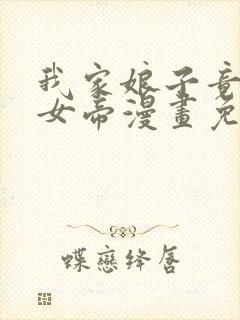 我家娘子竟
女帝漫畫免
蝶戀绛唇